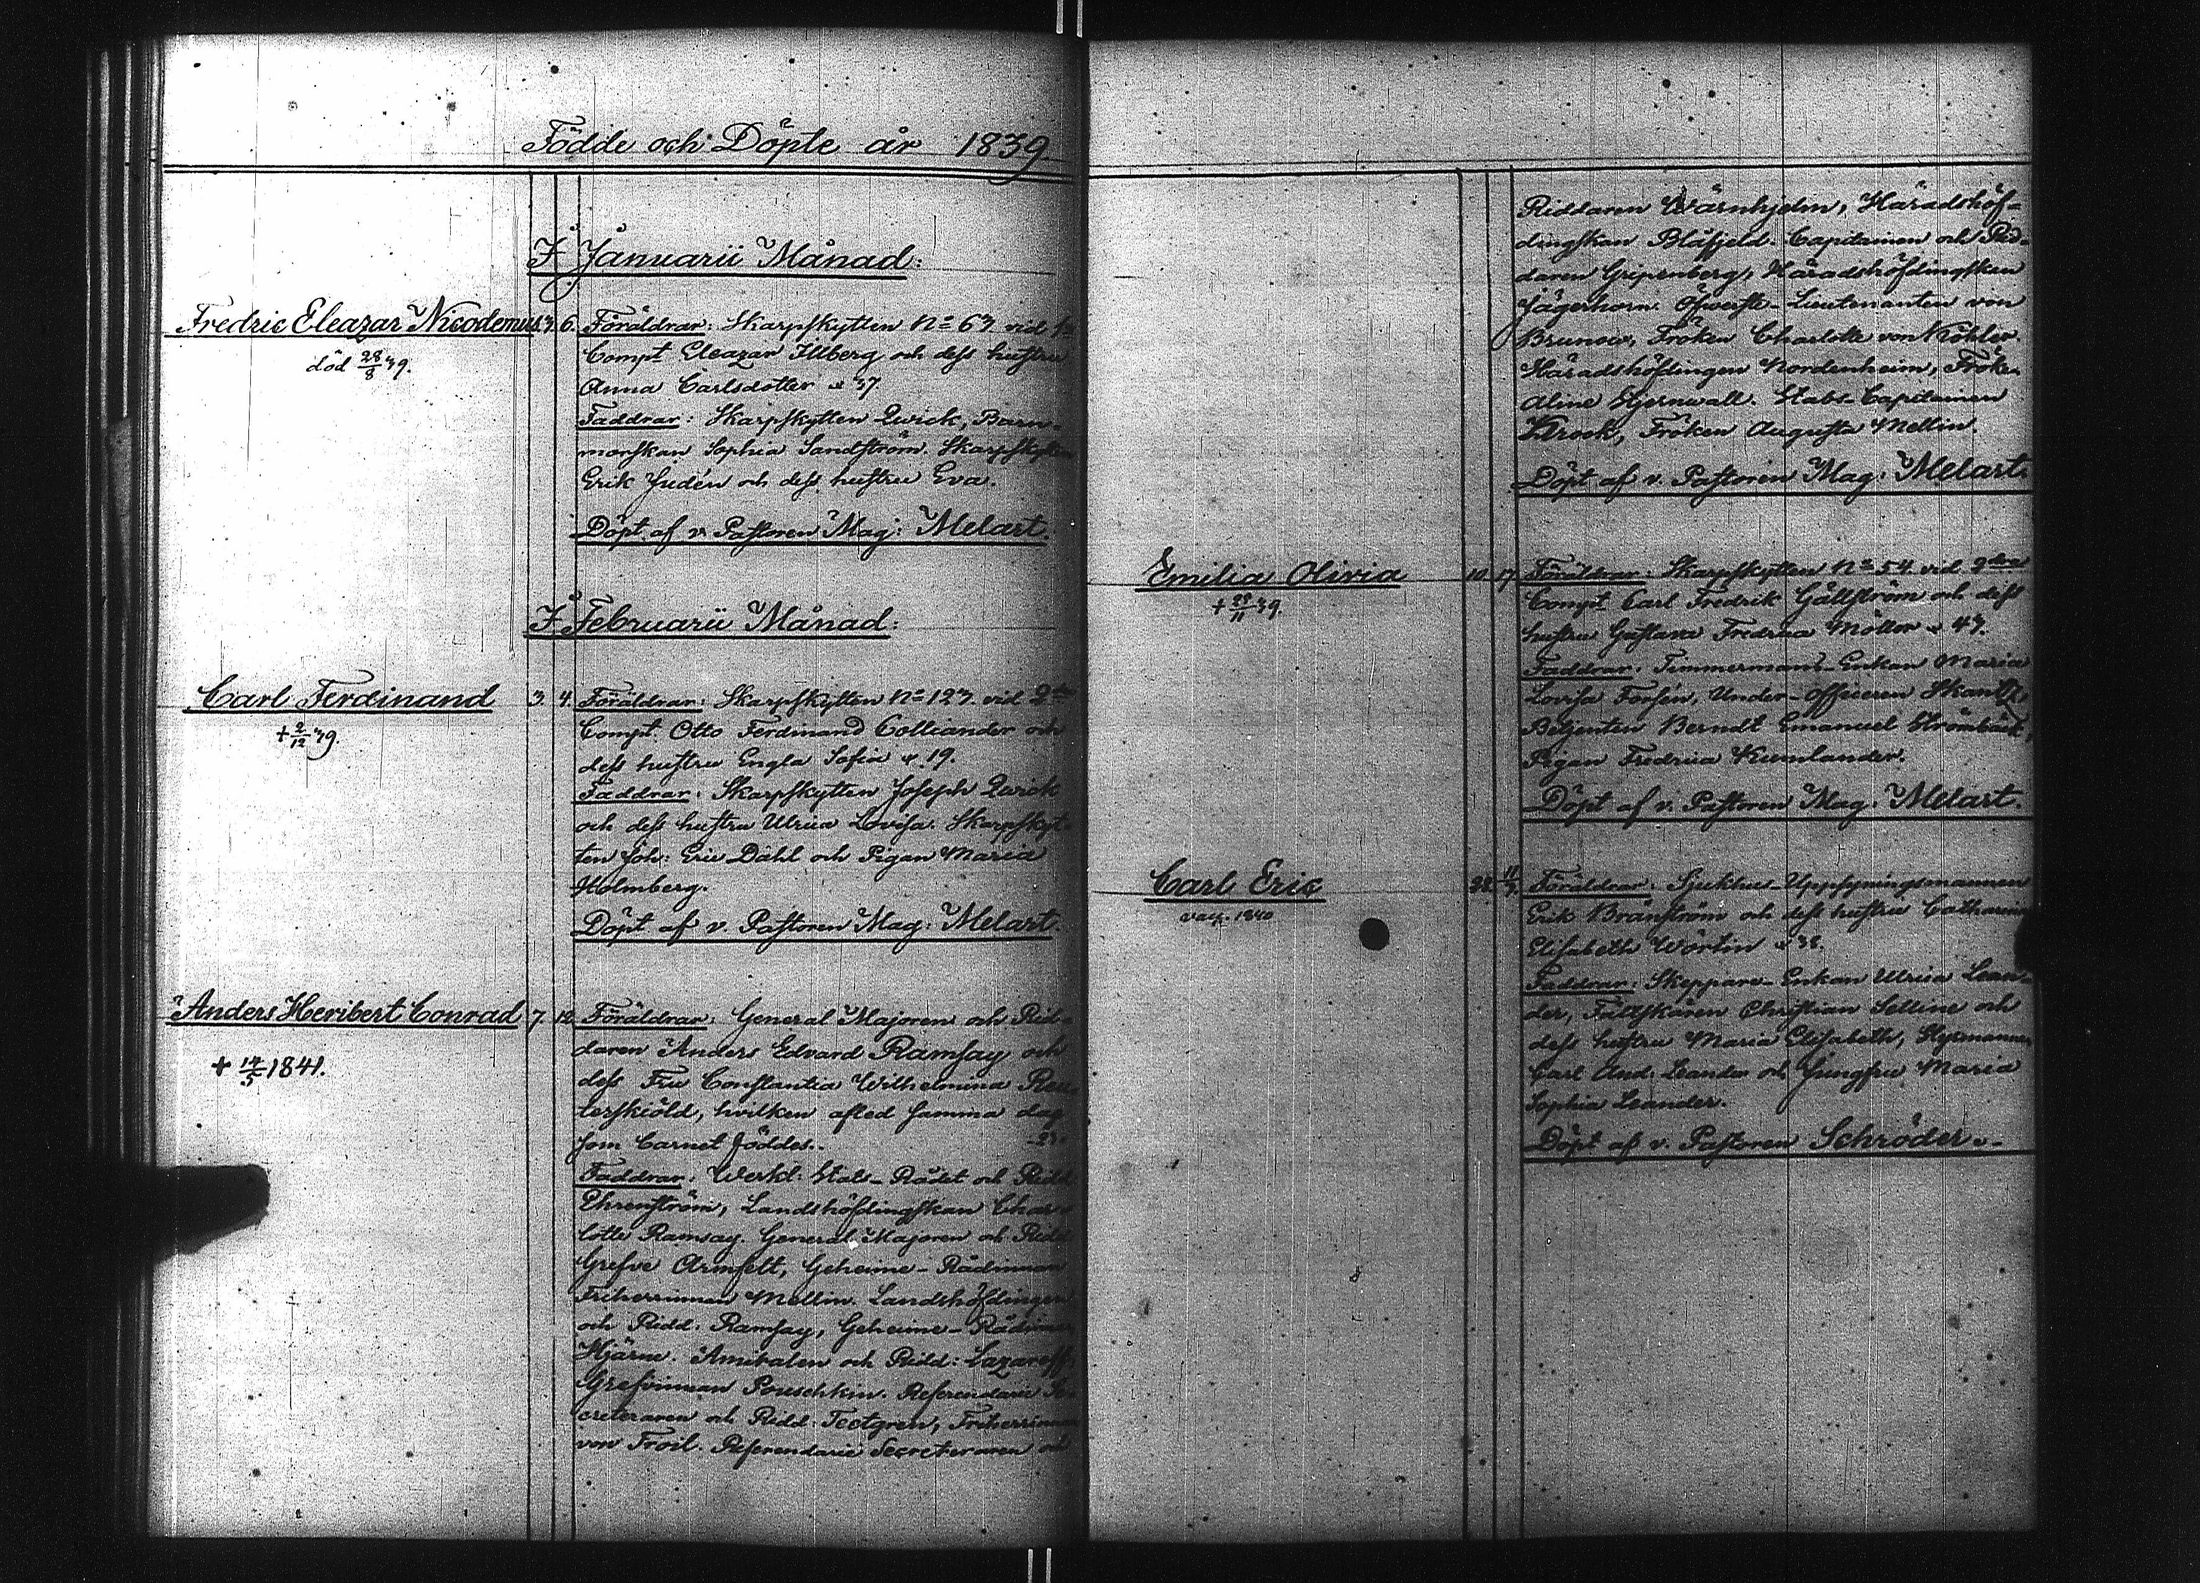 Födde och Döpte år 1839
I Januarii Månad:
Fredric Eleazar Nicodemus 3. 6. Föräldrar: Skarpskytten No 63 vid 1a
död 28/8 39.
Compt Eleazar Illberg och dess hustru
Anna Carlsdotter 37
Faddrar: Skarpskytten Qwick, Barn-
morskan Sophia Sandström. Skarpskytten
Erik Judén och dess hustru Eva.
Döpt af v. Pastoren Mag: Melart.
I Februarii Månad:
Carl Ferdinand 3. 4. Föräldrar: Skarpskytten No 123 vid 2dra
+ 2/12 39.
Compt Otto Ferdinand Colliander och
dess hustru Engla Sofia 19.
Faddrar: Skarpskytten Joseph Qwick
och dess hustru Ulrica Lovisa. Skarpskyt-
ten Joh: Eric Dahl och Pigan Maria
Holmberg.
Döpt af v. Pastoren Mag: Melart.
Anders Heribert Conrad 7 12 Föräldrar: General Majoren och Rid-
+ 14/5 1841.
daren Anders Edvard Ramsay och
dess Fru Constantia Wilhelmina Reu
terskiöld, hvilken afled samma dag
som barnet föddes. 23.
Faddrar: Werkl: Stats-Rådet och Ridd
Ehrenström, Landshöfdingskan Char
lotte Ramsay. General Majoren och Ridd
Grefve Armfelt, Geheime-Rådinnan
Friherrinnan Mellin. Landshöfdingen
och Ridd: Ramsay, Geheime-Rådinnan
Hjärne. Amiralen och Ridd: Lazareff,
Grefvinnan Pouschkin. Referendarie Se-
creteraren och Ridd: Teetgren, Friherrinnan
von Troil. Referendarie Secreteraren och
Riddaren Wärnhjelm, Häradshöf-
dingskan Blåfjeld. Capitainen och Rid-
daren Gripenberg, Häradshöfdingskan
Jägerhorn. Öfverste-Lieutenanten von
Brunow, Fröken Charlotte von Köhler.
Häradshöfdingen Nordenheim, Fröken
Aline Stjernwall. Stabs-Capitainen
Krook, Fröken Augusta Mellin.
Döpt af v. Pastoren Mag: Melart.
Emilia Olivia 10. 17. Föräldrar: Skarpskytten No 54 vid 2dra
11 39.
Compt Carl Fredrik Gällström och dess
hustru Gustava Fredrica Möller 43.
Faddrar: Timmermans-Enkan Maria
Lovisa Forsén, Under-officeren Skantz
Betjenten Berndt Emanuel Strömbäck,
Pigan Fredrica Kumlander.
Döpt af v. Pastoren Mag: Melart.
Carl Eric 28. 11/3 Föräldrar: Sjukhus-Uppsyningsmannen
vacc. 1840
Erik Bränström och dess hustru Catharina
Elisabeth Wörtin 38.
Faddrar: Skeppare-Enkan Ulrica Lean-
der, Fältskären Christian Selline och
dess hustru Maria Elisabeth, Styrmannen
Carl And. Leander och Jungfru Maria
Sophia Leander.
Döpt af v. Pastoren Schröder